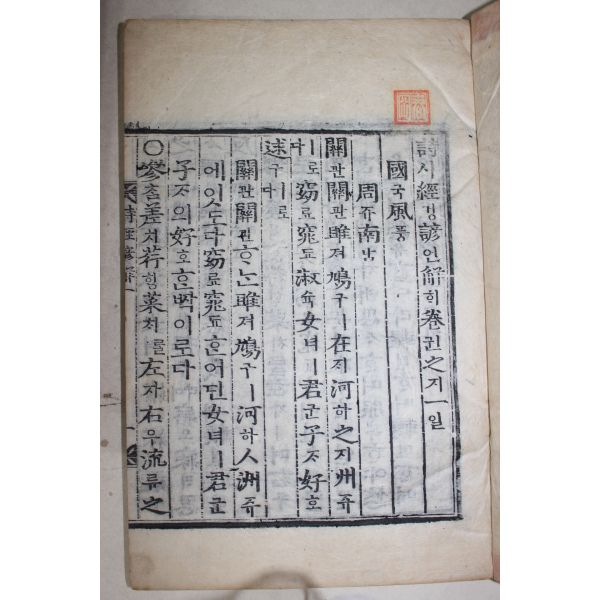 詩시經경諺언解ᄒᆡ卷권之지一일
國국風풍
周쥬南남
關관關관雎져鳩구ㅣ在ᄌᆡ河하之지州쥬
ㅣ로다窈요窕됴淑슉女녀ㅣ君군子ᄌᆞ好호
逑구ㅣ로다
關관關관ᄒᆞᄂᆞᆫ雎져鳩구ㅣ河하ㅅ洲쥬
에잇도다窈요窕됴ᄒᆞᆫ어딘女녀ㅣ君군
子ᄌᆞ의好호ᄒᆞᆫᄧᅡᆨ이로다
○參ᄎᆞᆷ差치荇ᄒᆡᆼ菜ᄎᆡ를左자右우流류之
詩經諺解 一